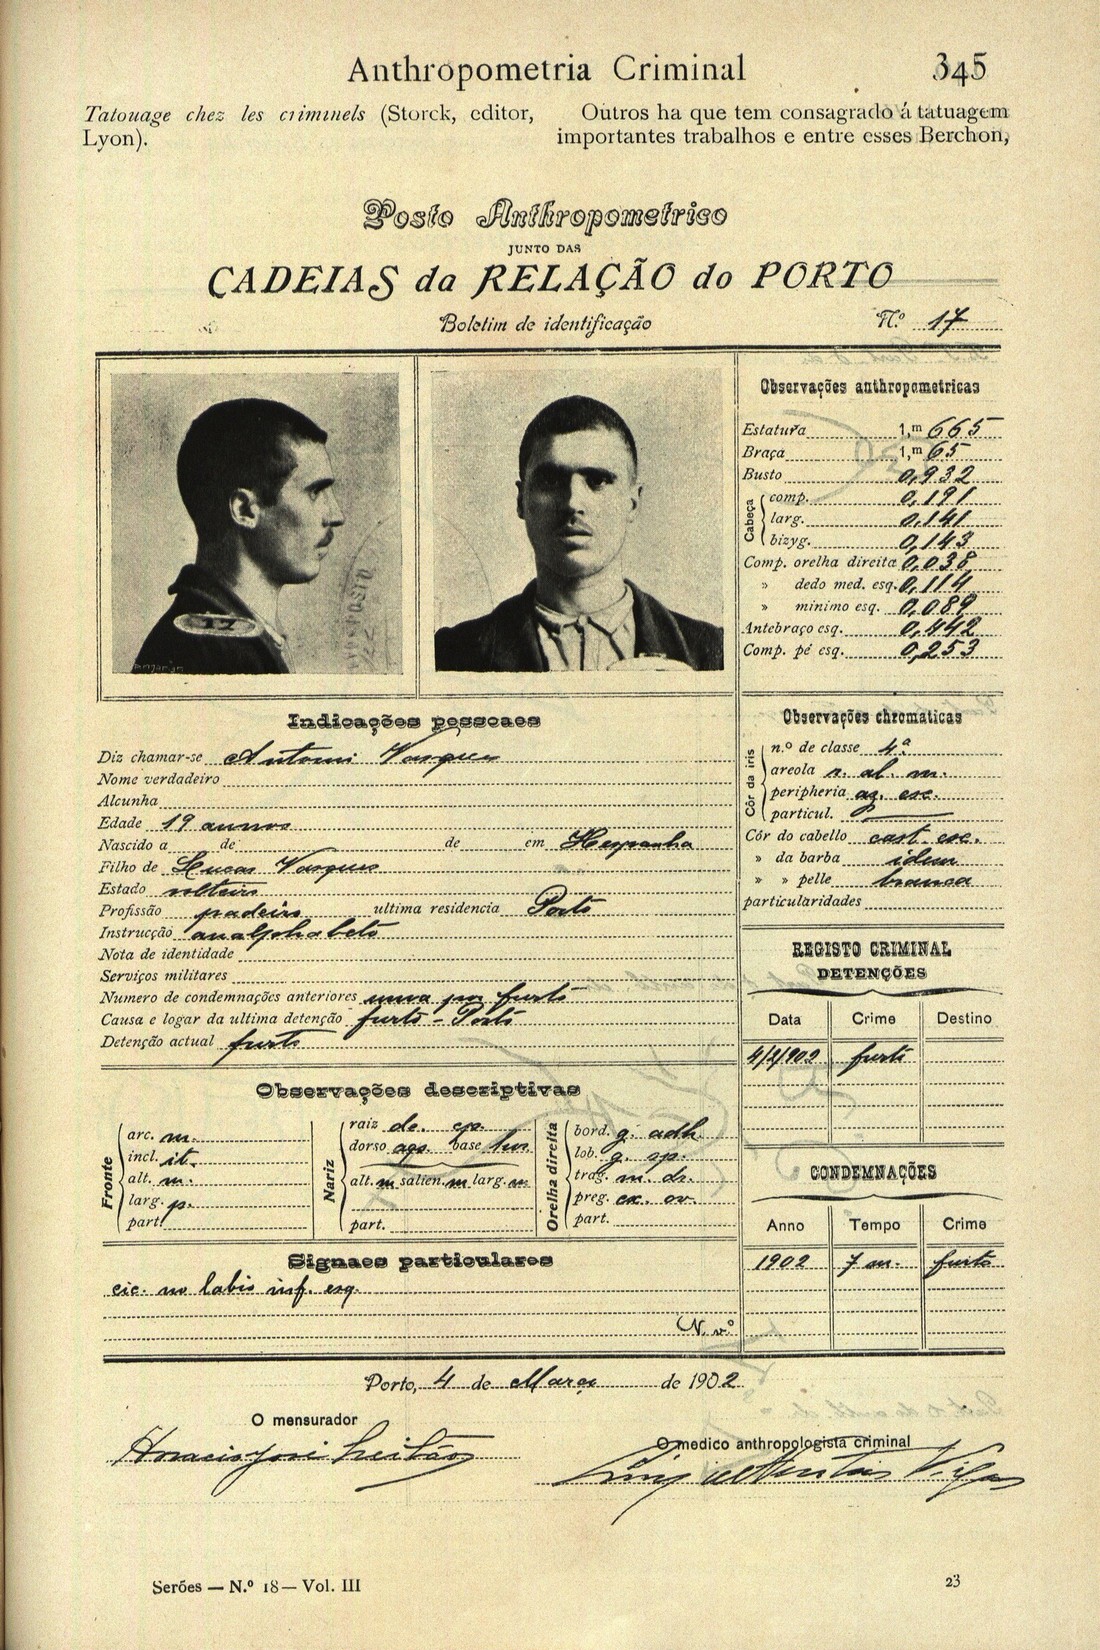 Anthropometria Criminal 345
Tatouage chez les criminels (Storck, editor,
Lyon).
Outros ha que tem consagrado á tatuagem
importantes trabalhos e entre esses Berchon,
Posto Anthropometrico
JUNTO DAS
CADEIAS da RELAÇÃO do PORTO
Boletim de identificação
N.º 17
17
Observações anthropometricas
Estatura 1,m 665
Braça 1,m 65
Busto 0,932
Cabeça
comp. 0,191
larg. 0,141
bizyg. 0,143
Comp. orelha direita 0,038
» dedo med. esq. 0,114
» minimo esq. 0,089
Antebraço esq. 0,442
Comp. pé esq. 0,253
Indicações pessoaes
Diz chamar-se Antonio Vasques
Nome verdadeiro
Alcunha
Edade 19 annos
Nascido a de de em Hespanha
Filho de Lucas Vasques
Estado solteiro
Profissão padeiro ultima residencia Porto
Instrucção analphabeto
Nota de identidade
Serviços militares
Numero de condemnações anteriores uma por furto
Causa e logar da ultima detenção furto - Porto
Detenção actual furto
Observações chromaticas
Côr da iris
n.º de classe 4.ª
areola r. al. m.
peripheria az. esc.
particul.
Côr do cabello cast. esc.
» da barba idem
» » pelle branca
particularidades
REGISTO CRIMINAL
DETENÇÕES
Data Crime Destino
4/2/902 furto
Observações descriptivas
Fronte
arc. m.
incl. it.
alt. m.
larg. p.
part.
Nariz
raiz
dorso base hor.
alt. m salien. m larg. m
part.
Orelha direita
bord. g. adh.
lob. g. sp.
trag. m. dr.
preg. ex. ov.
part.
CONDEMNAÇÕES
Anno Tempo Crime
1902 7 m. furto
Signaes particulares
cic. no labio inf. esq.
Porto, 4 de Março de 1902
O mensurador
Horacio José Leitão
O medico anthropologista criminal
Serões — N.º 18 — Vol. III
23